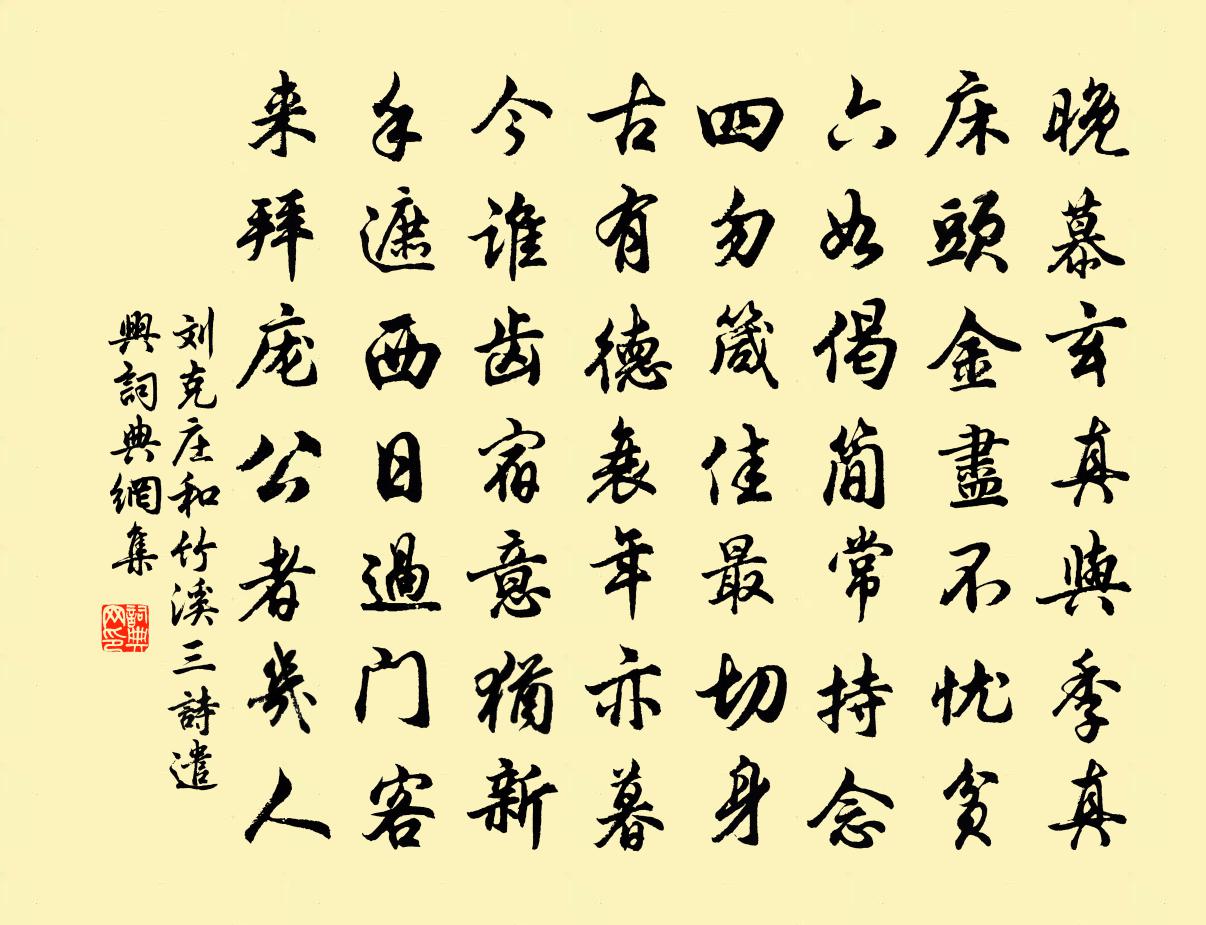 晚慕玄真與季真
床頭金盡不忧貧
六如偈简常持念
四勿箴佳最切身
古有德衰年亦暮
今谁齿宿意猶新
手遮西日過门客
来拜庞公者幾人
刘克庄和竹溪三詩遣
興詞典網集
詞典网印